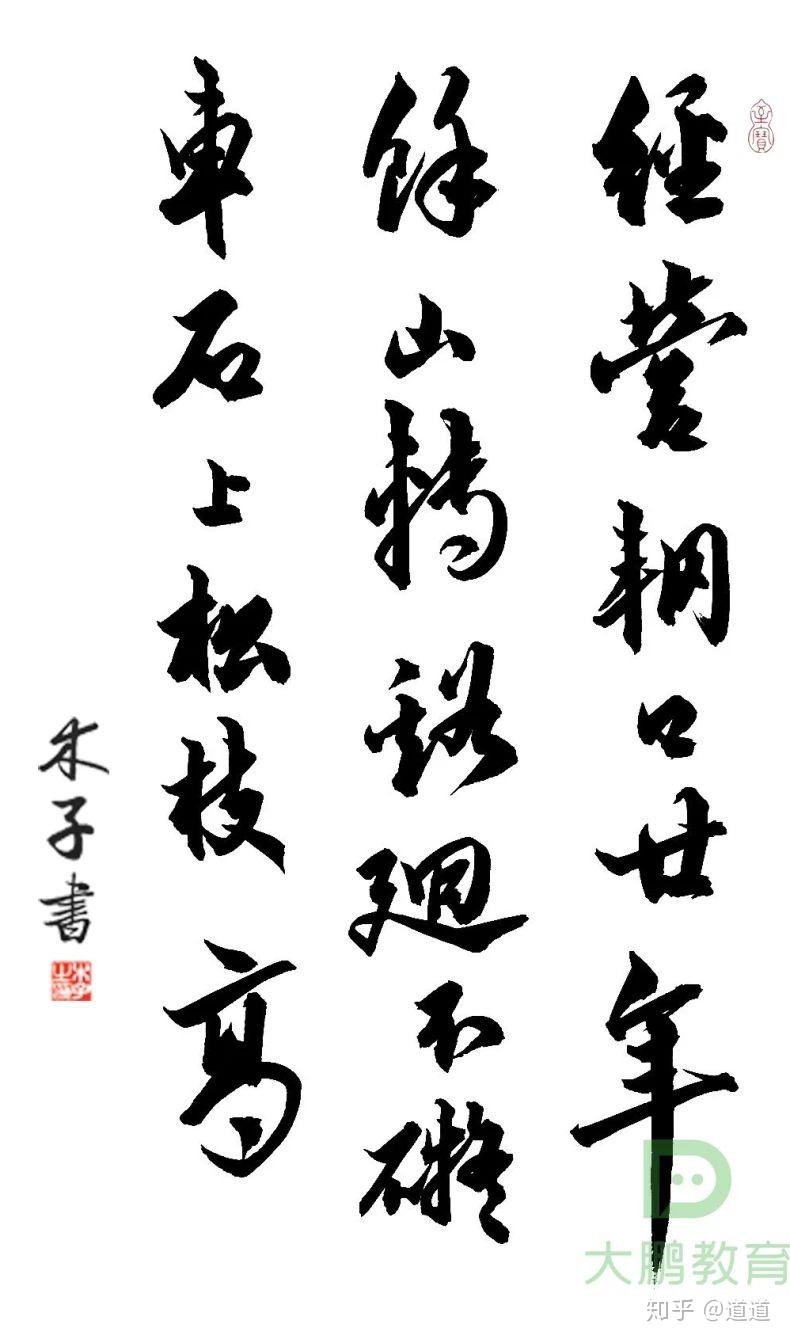 經營輞口廿年
餘山轉谿廻不礙
車石上松枝高
木子書
大鹏教育
知乎 @道道